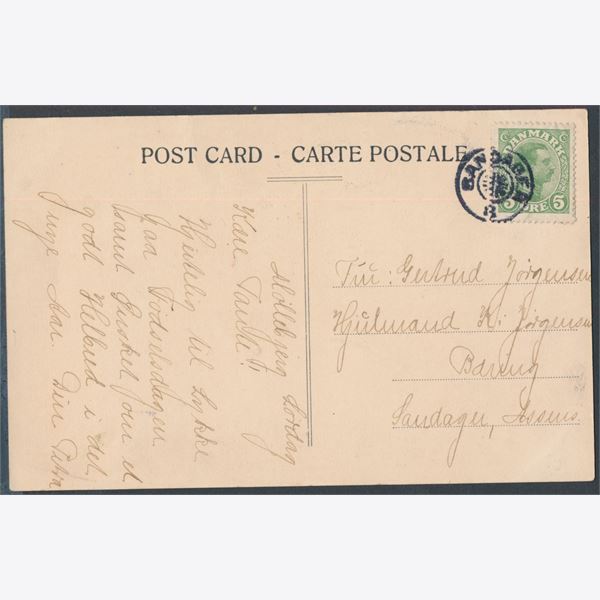 POST CARD - CARTE POSTALE
DANMARK
5 ØRE 5
SANDAGER
Møllebjerg Lørdag
Kære Tante!
Hjertelig til Lykke
paa Fødselsdagen
samt Ønsket om et
godt Helbred i det
nye Aar. Din Petra
Fru: Gertrud Jørgensen
Hjulmand K. Jørgensen
Båring
Sandager, Assens